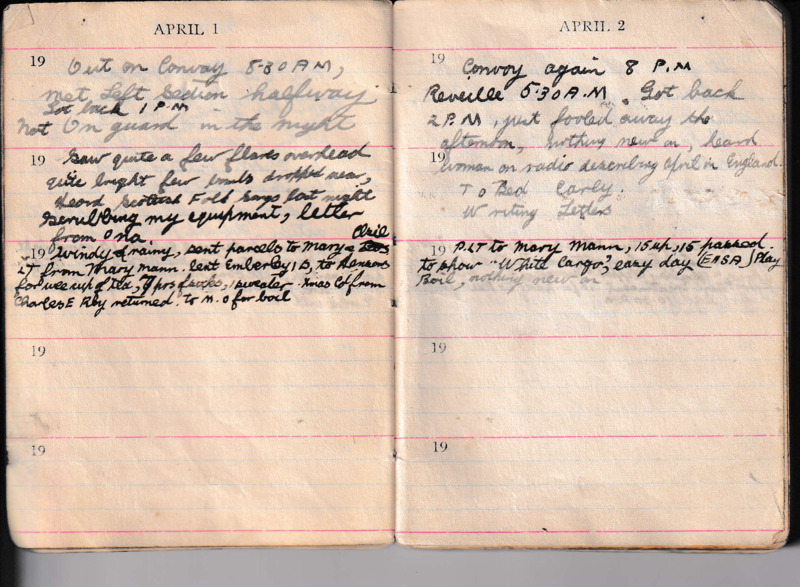 APRIL 1
19 Out on Convoy 5-30 A M,
met Left Section halfway
Got back 1 P.M
Not On guard in the night
19 Saw quite a few flares overhead
quite bright few bombs dropped near,
Heard Scottish Folk Songs last night
Scrubbing my equipment, letter
from Ona.
19 Windy & rainy, sent parcels to Mary &
LT from Mary Mann. lent Emberley 1 D, to
for wee cup of tea, 7 prs socks, 1 sweater. Xmas Cd from
Charles E Rey returned. to M.O for boil
19
19
APRIL 2
19 Convoy again 8 P.M
Reveille 5-30 A.M. Got back
2 P.M, just fooled away the
afternoon, nothing new on, heard
19 woman on radio describing April in England.
To Bed Early.
Writing Letters
19 P.LT to Mary Mann, 15 up, 15 passed.
to show "White Cargo", easy day (ENSA) Play
Boil, nothing new on
19
19